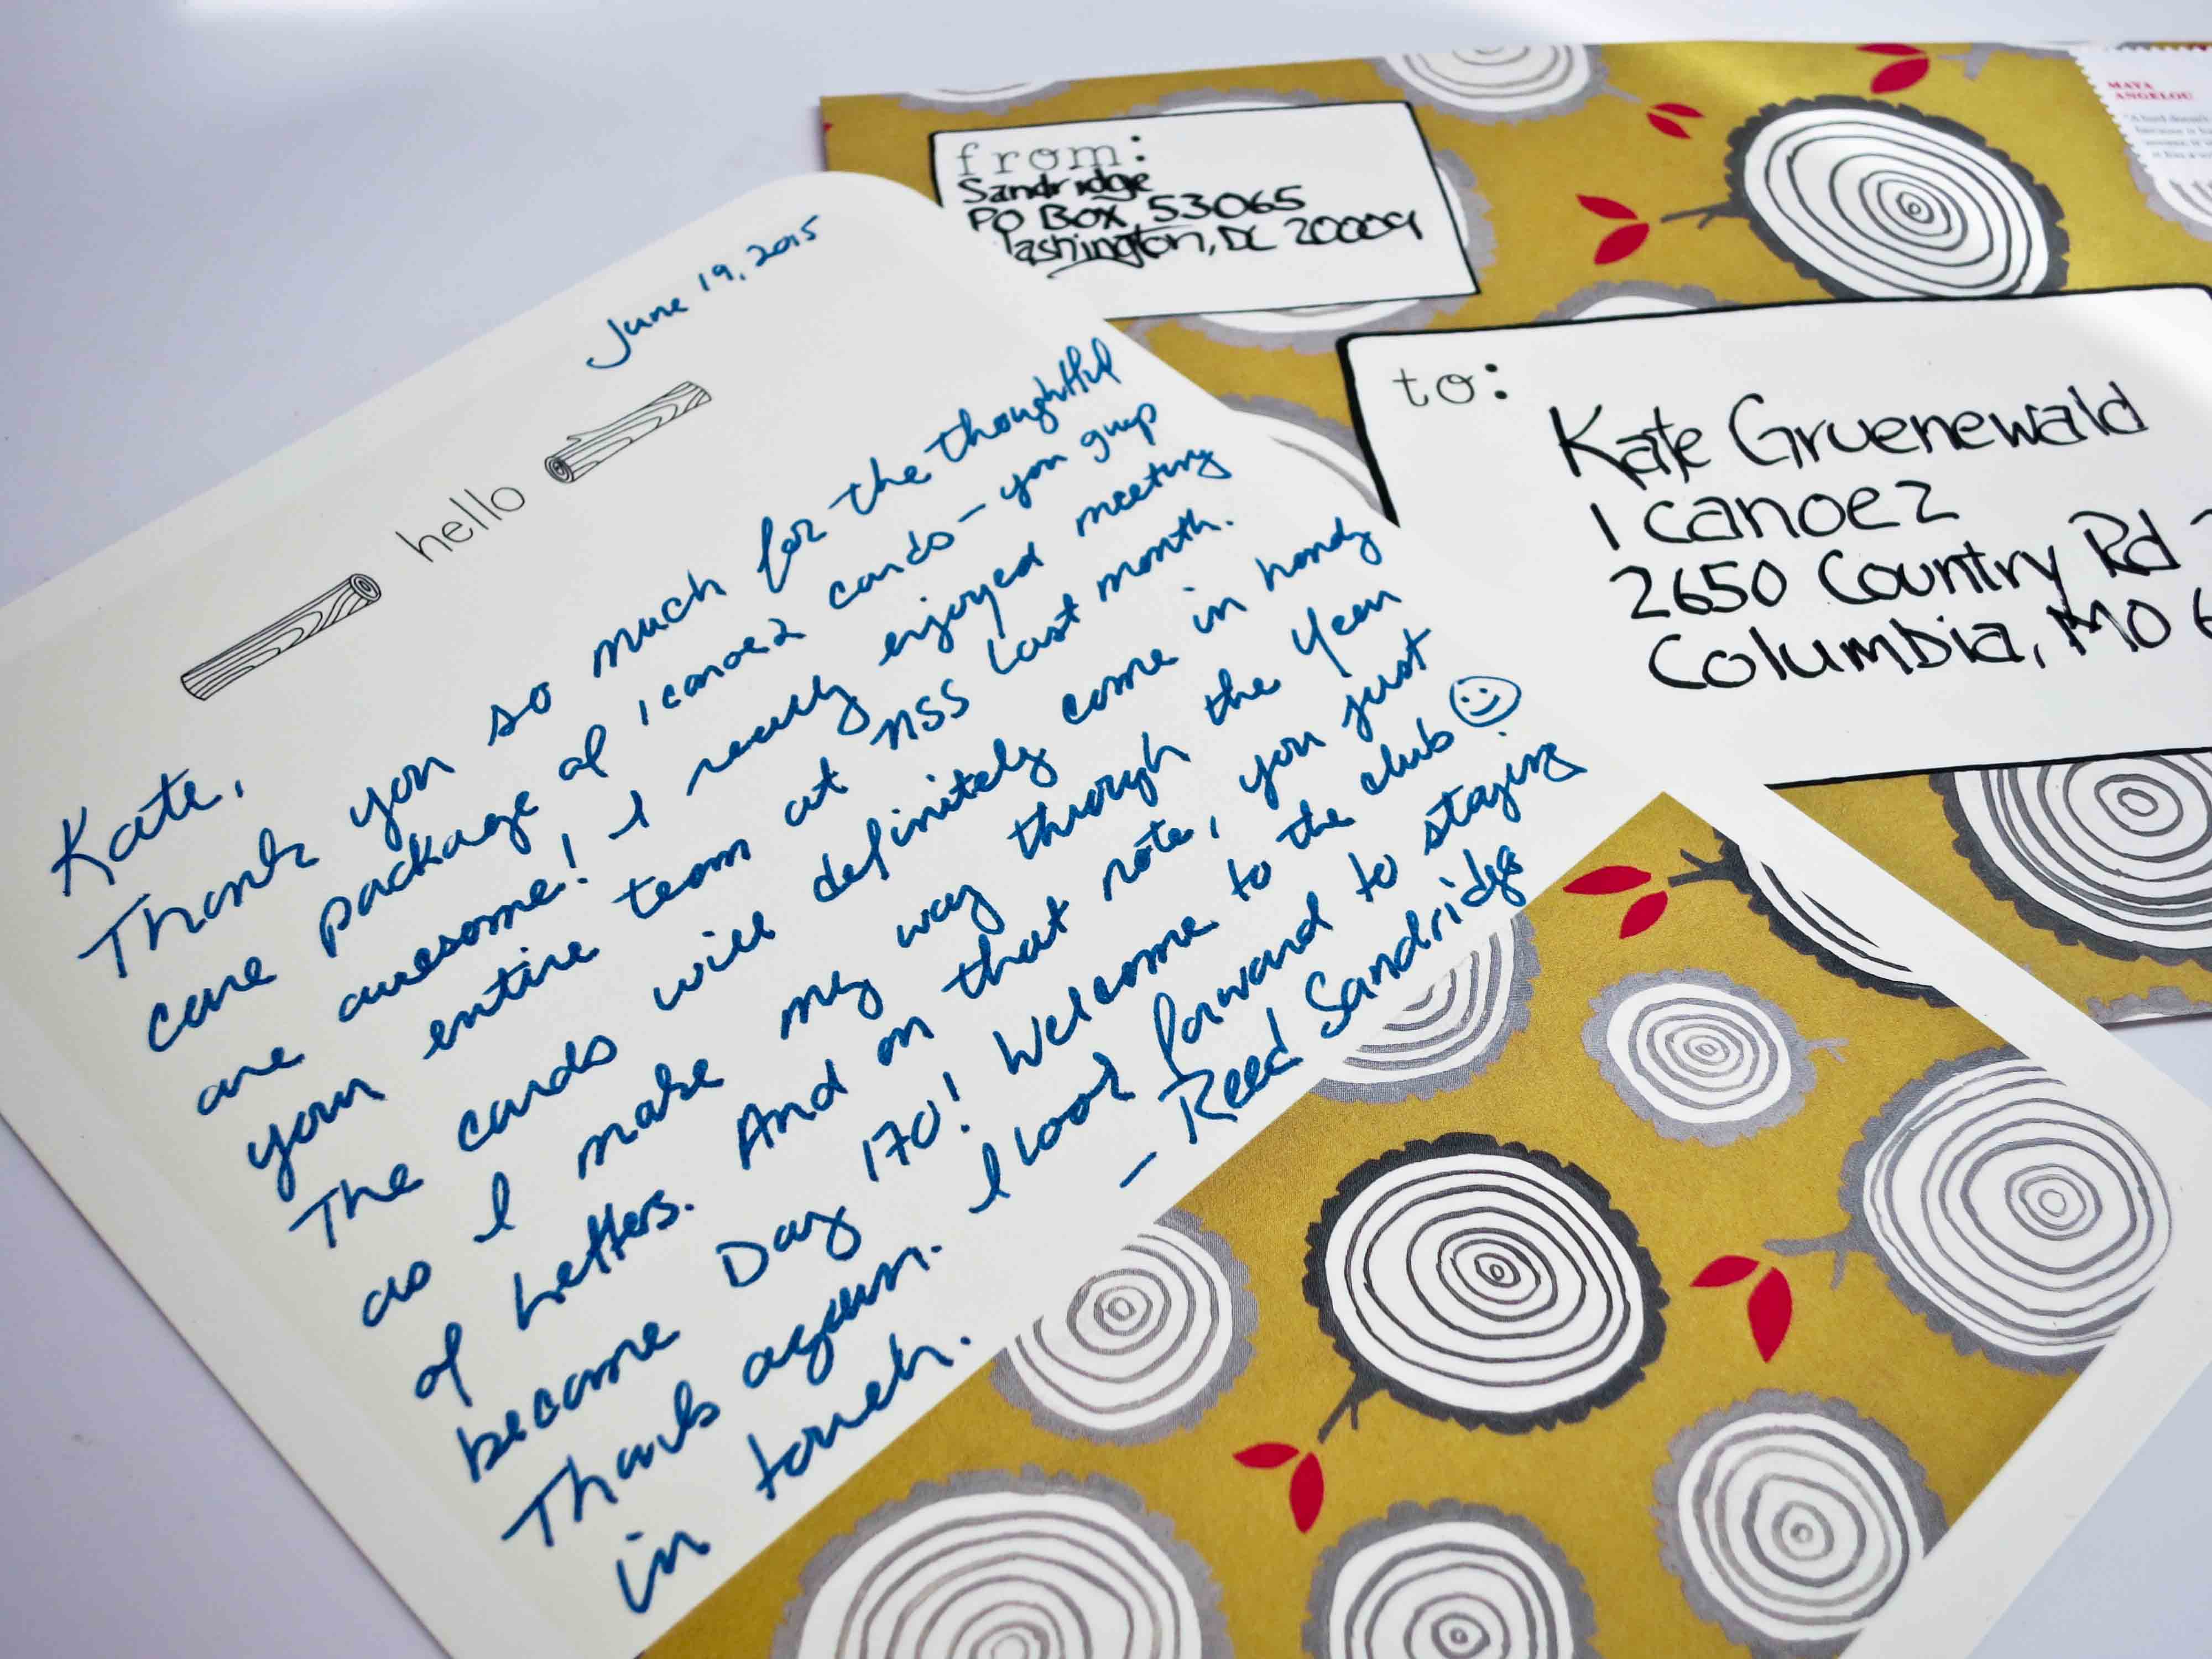 June 19, 2015
hello
Kate,
Thank you so much for the thoughtful
care package of 1canoe2 cards - you guys
are awesome! I really enjoyed meeting
your entire team at NSS last month.
The cards will definitely come in handy
as I make my way through the year
of letters. And on that note, you just
become Day 170! Welcome to the club ☺
Thanks again. I look forward to staying
in touch.
- Reed Sandridge
from:
Sandridge
PO Box 53065
Washington, DC 20009
to:
Kate Gruenewald
1 canoe 2
2650 Country Rd
Columbia, MO 6
MAYA
ANGELOU
"A bird doesn't
because it
it has a